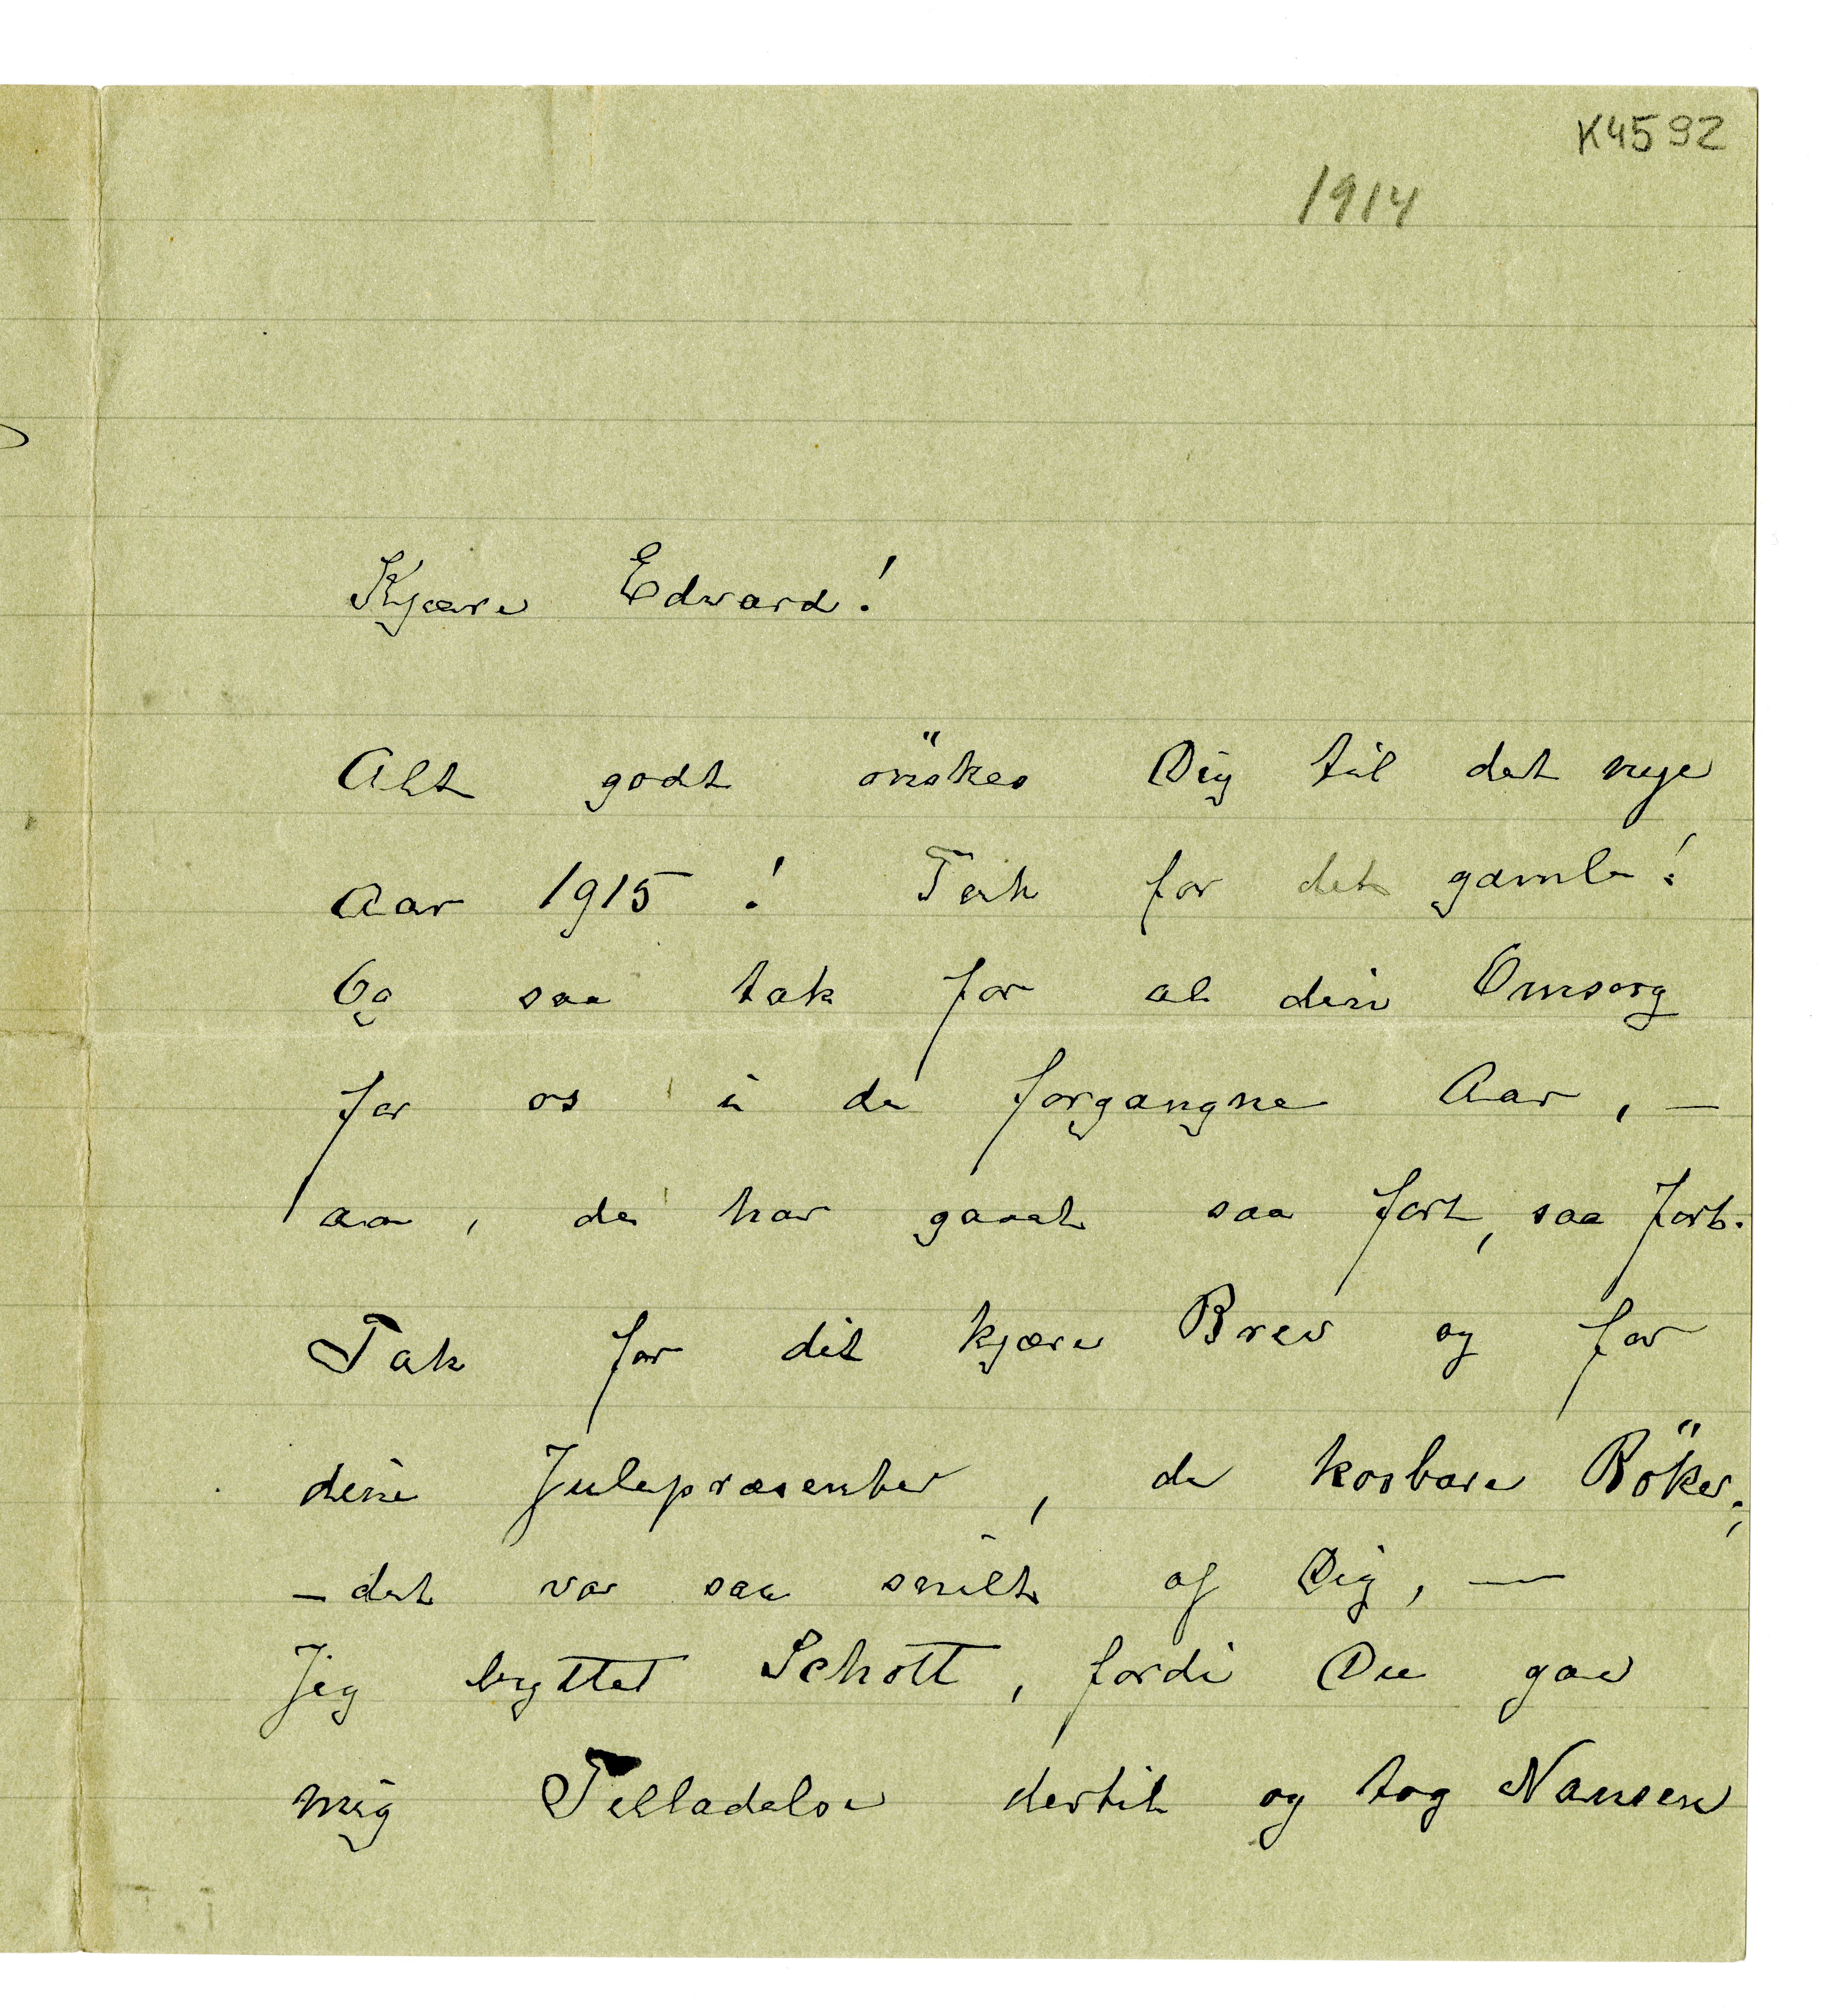 K4592
1914
Kjære Edvard!
Alt godt önskes Dig til det nye
Aar 1915! Tak for det gamle!
Og saa tak for al din Omsorg
for os i de forgangne Aar, —
aa, de har gaaet saa fort, saa fort.
Tak for dit kjære Brev og for
dine Julepræsenter, de kosbare Böker;
— det var saa snilt af Dig, —
Jeg byttet Schött, fordi Du gav
mig Telladelse dertil og tog Nansen